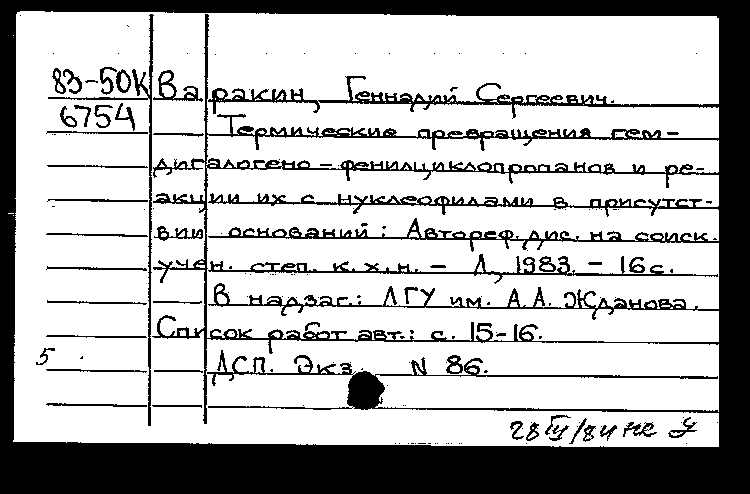 83-50К Варакин, Геннадий Сергеевич.
6754 Термические превращения гем-
дигалогено-фенилциклопропанов и ре-
акции их с нуклеофилами в присутст-
вии оснований: Автореф. дис. на соиск.
учен. степ. к. х. н. - Л, 1983. - 16 с.
В надзаг.: ЛГУ им. А. А. Жданова.
Список работ авт.: с. 15-16.
5 ДСП. Экз. N 86.
28 III/84